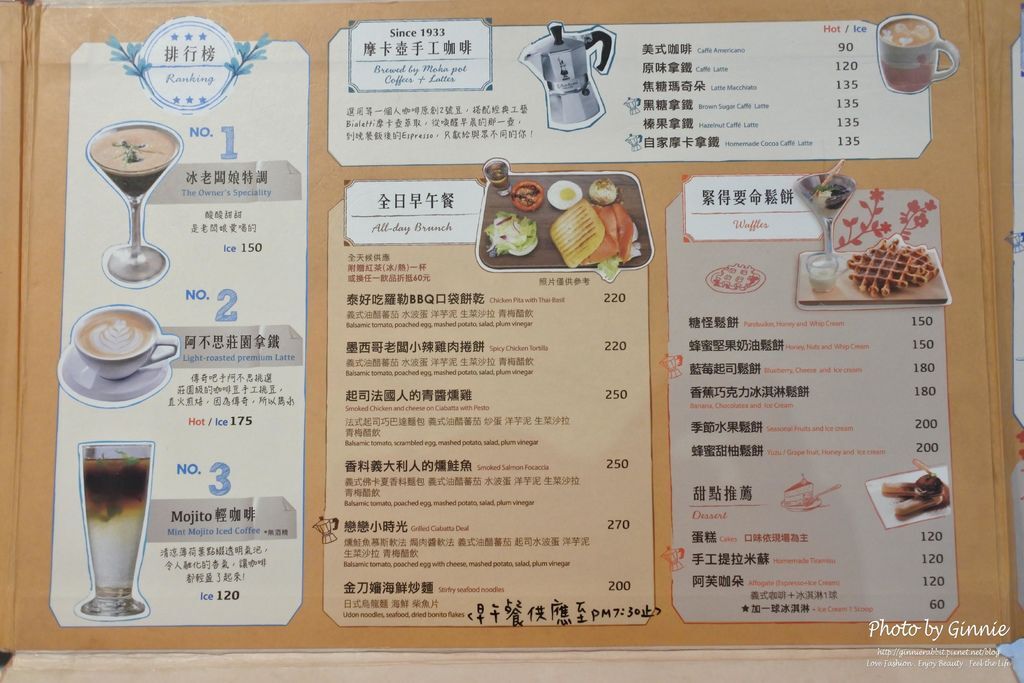 排行榜
Ranking
NO. 1
冰老闆娘特調
The Owner's Speciality
酸酸甜甜
是老闆娘愛喝的
Ice 150
NO. 2
阿不思莊園拿鐵
Light-roasted premium Latte
傳奇吧手阿不思挑選
莊園級的咖啡豆手工挑豆，
直火煎焙，因為傳奇，所以雋永
Hot / Ice 175
NO. 3
Mojito 輕咖啡
Mint Mojito Iced Coffee *無酒精
清涼薄荷葉點綴透明氣泡，
令人融化的香氣，讓咖啡
都輕盈了起來！
Ice 120
Since 1933
摩卡壺手工咖啡
Brewed by Moka pot
Coffees + Lattes
選用等一個人咖啡原創2號豆，搭配經典工藝
Bialetti摩卡壺萃取，從喚醒早晨的那一壺，
到晚餐飯後的Espresso，只獻給與眾不同的你！
Hot / Ice
美式咖啡 Caffé Americano 90
原味拿鐵 Caffé Latte 120
焦糖瑪奇朵 Latte Macchiato 135
黑糖拿鐵 Brown Sugar Caffé Latte 135
榛果拿鐵 Hazelnut Caffé Latte 135
自家摩卡拿鐵 Homemade Cocoa Caffé Latte 135
全日早午餐
All-day Brunch
全天候供應
附贈紅茶(冰/熱)一杯
或換任一飲品折抵60元
照片僅供參考
泰好吃羅勒BBQ口袋餅乾 Chicken Pita with Thai-Basil 220
義式油醋蕃茄 水波蛋 洋芋泥 生菜沙拉 青梅醋飲
Balsamic tomato, poached egg, mashed potato, salad, plum vinegar
墨西哥老闆小辣雞肉捲餅 Spicy Chicken Tortilla 220
義式油醋蕃茄 水波蛋 洋芋泥 生菜沙拉 青梅醋飲
Balsamic tomato, poached egg, mashed potato, salad, plum vinegar
起司法國人的青醬燻雞 250
Smoked Chicken and cheese on Ciabatta with Pesto
法式起司巧巴達麵包 義式油醋蕃茄 炒蛋 洋芋泥 生菜沙拉
青梅醋飲
Balsamic tomato, scrambled egg, mashed potato, salad, plum vinegar
香料義大利人的燻鮭魚 Smoked Salmon Focaccia 250
義式佛卡夏香料麵包 義式油醋蕃茄 水波蛋 洋芋泥 生菜沙拉
青梅醋飲
Balsamic tomato, poached egg, mashed potato, salad, plum vinegar
戀戀小時光 Grilled Ciabatta Deal 270
燻鮭魚慕斯軟法 焗肉醬軟法 義式油醋蕃茄 起司水波蛋 洋芋泥
生菜沙拉 青梅醋飲
Balsamic tomato, poached egg with cheese, mashed potato, salad, plum vinegar
金刀嬸海鮮炒麵 Stirfry seafood noodles 200
日式烏龍麵 海鮮 柴魚片
Udon noodles, seafood, dried bonito flakes
<早午餐供應至PM7:30止>
緊得要命鬆餅
Waffles
糖怪鬆餅 Honey and Whip Cream 150
蜂蜜堅果奶油鬆餅 Honey, Nuts and Whip Cream 150
藍莓起司鬆餅 Blueberry, Cheese and Ice cream 180
香蕉巧克力冰淇淋鬆餅 180
Banana, Chocolatea and Ice Cream
季節水果鬆餅 Seasonal Fruits and Ice cream 200
蜂蜜甜柚鬆餅 Yuzu / Grape fruit, Honey and Ice cream 200
甜點推薦
Dessert
蛋糕 Cakes 口味依現場為主 120
手工提拉米蘇 Homemade Tiramisu 120
阿芙咖朵 Affogate (Espresso+Ice Cream) 120
義式咖啡＋冰淇淋1球
★加一球冰淇淋 + Ice Cream 1 Scoop 60
Photo by Ginnie
http://ginnierabbit.pixnet.net/blog
Love Fashion . Enjoy Beauty . Feel the Life